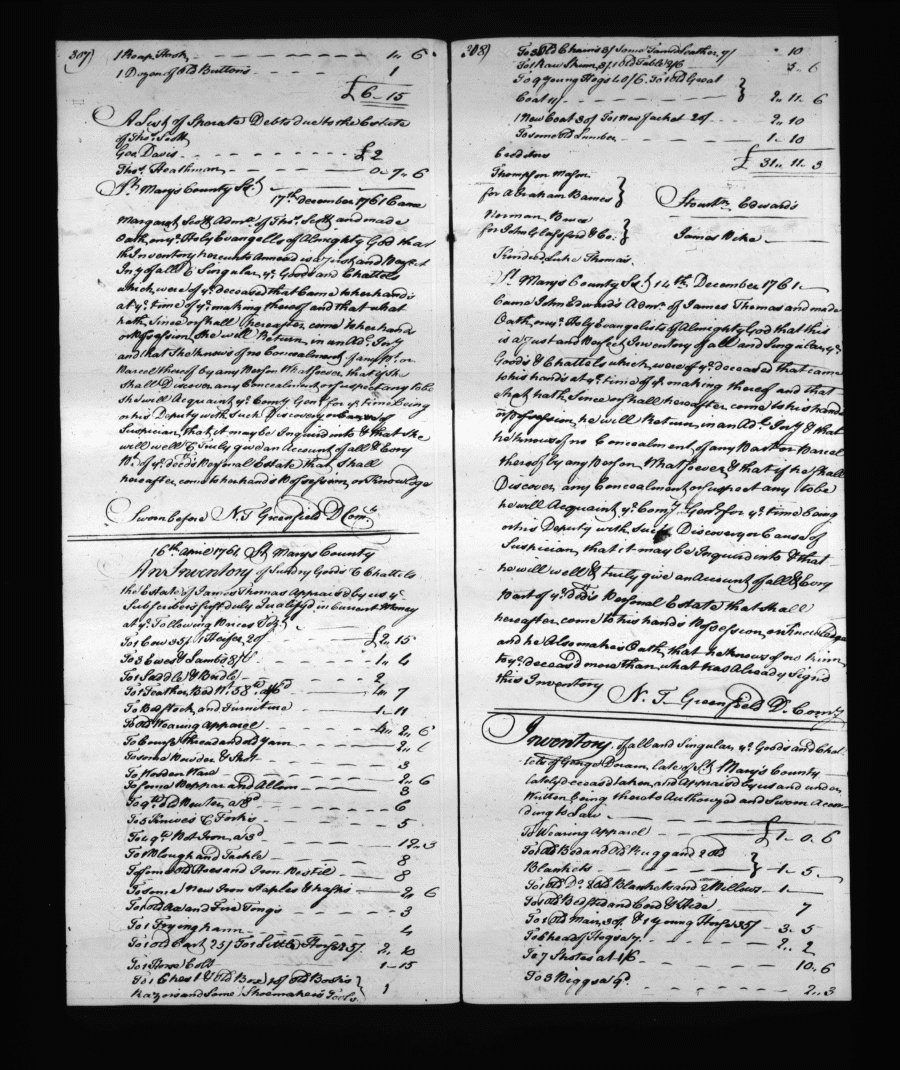 307)
1 Reap Hook - - - - - 1 " 6
1 Dozen of old Buttons - - - - 1
£6 - 15
A List of Sperate Debts due to the Estate
of Thos. Scott
Geo Davis - - - - - £2
Thos. Heathman - - - - - 0 - 7 - 6
St. Mary's County Sc.
17th. december 1761 Came
Margaret Scott Admx. of Thos. Scott and made
Oath, on ye. Holy Evangells of Almighty God that
the Inventory hereunto Annexed is a Just and Perfect
Invy. of all & Singular ye. Goods and Chattels
which were of ye. deceased that Came to her hands
at ye. time of ye. making thereof and that what
hath since or shall hereafter come to her hands
or Possession, She will Return, in an Adl. Invy
and that She knows of no Concealment of any Pt. or
Parcel thereof by any Person Whatsoever, that if She
Shall Discover any Concealment or suspect any to be
She will Acquaint ye. Comy. Genl. for ye. time being
or his Deputy with Such Discovery or Cause of
Suspicion, that it may be Inquired into & that She
will well & Truly give an Account of all & Every
Pt. of ye. decds. Personal Estate that Shall
hereafter come to her hands Possession or Knowledge
Sworn before N. T. Greenfield D Comy.
16th. April 1761 St. Marys County
An Inventory of Sundry Goods & Chattels
the Estate of James Thomas Appraised by us ye.
Subscribers first duly Qualifyd in Current Money
at ye. Following Prices Viz.
To 1 Cow 35/ 1 Heifer 20/ - £2 " 15
To 3 Ewes & Lambs 8/ - - - 1 " 4
To 1 Saddle & Bridle - - - 2
To 1 Feather Bed Wt. 58 lb. - - 7
To Bedstock and Furniture - - - 1 - 11
To old Wearing Apparel - - - 4 " 2 " 6
To Thread and old Yarn - - - 2 "
To some Powder & Shot - - - 3
To Wooden Ware - - - 2 " 6
To some Peppar and Allom - - - 8
To 9 lb. old Pewter, a 8d - - - 6
To 5 Knives & Forks - - - 5
To 49 lb. Pot Iron, a 3d - - - 12 " 3
To 1 Plough and Tackle - - - 8
To some old Hoes and Iron Pestil - - - 8
To some New Iron Staples & hasps - - 2 " 6
To 1 old Axe and Fire Tongs - - - 3
To 1 Frying hann - - - 4
To 1 old Cart 25/ To 1 Little Horse 25/. 2 " 10
To 1 Horse Colt - - - 1 - 15
To 1 Chest & old Box, 1 of old Books
Razors and Some Shoemakers Tools } 1
308)
To 3 Old Chairs 3/ Some Tanned Leather, 7/ " 10
To 1 Raw Skinn, 3/, 1 old Table 2/6 - - 5 - 6
To 9 young Hogs 40/6. To 1 Old Great
Coat 11/ - - - } 2 " 11 - 6
1 New Coat 30/ To 1 New Jacket 20/ - - 2 " 10
To some old Lumber - - - 1 - 10
£31 " 11 - 3
Creditors
Thompson Mason
for Abraham Barnes }
Stourtn. Edwards
Norman Bruce
for John Glassford & Co. }
James Pike
Kindred Luke Thomas.
St. Marys County Sc. 14th. December 1761
Came John Edwards Admr. of James Thomas and made
Oath, on ye. Holy Evangelists of Almighty God that this
is a Just and Perfect Inventory of all and Singular, ye.
Goods & Chattels which, were of ye. deceased that came
to his hands at ye. time of ye. making thereof and that
that hath, Since or shall hereafter come to his hands
or Possession, he will Return, in an Adl. Invy. & that
he knows of no Concealment of any Part or Parcel
thereof by any Person Whatsoever & that if he shall
Discover any Concealment or suspect any to be
he will Acquaint ye. Comy. Genl. for ye. time being
or his Deputy with such Discovery or Cause of
Suspician, that it may be Inquired into & that
he will well & truly give an Account of all & Every
Part of ye. decds. Personal Estate that shall
hereafter come to his hands Possession or Knowledge
and he Also makes Oath, that he knows of no kinn,
to ye. deceasd more than what has Already Signd
this Inventory N. T. Greenfield D. Comy
Inventory, of all and Singular, ye. Goods and Chat
tels of George Doram, late of St. Mary's County
lately deceasd taken, and Appraised by us and under
Written being thereto Authorizd and Sworn Accor
ding to Law
To Wearing Apparel - - - £1 - 0 . 6
To 1 old Bed and Old Rugg and 2 Old
Blankets - - - } - 1 - 5 -
To 1 old Do. 2 Old Blankets and 2 Pillows - 1
To 1 old Bedsted and Cord & Hide - - 7
To 1 Old Mair, 30/. & 1 Young Horse 35/ - 3 - 5
To 6 head of Hogs a 7/. - - - 2 " 2
To 7 Shotes at 1/6 - - - 10 . 6
To 3 Piggs a 9d. - - - 2 " 3